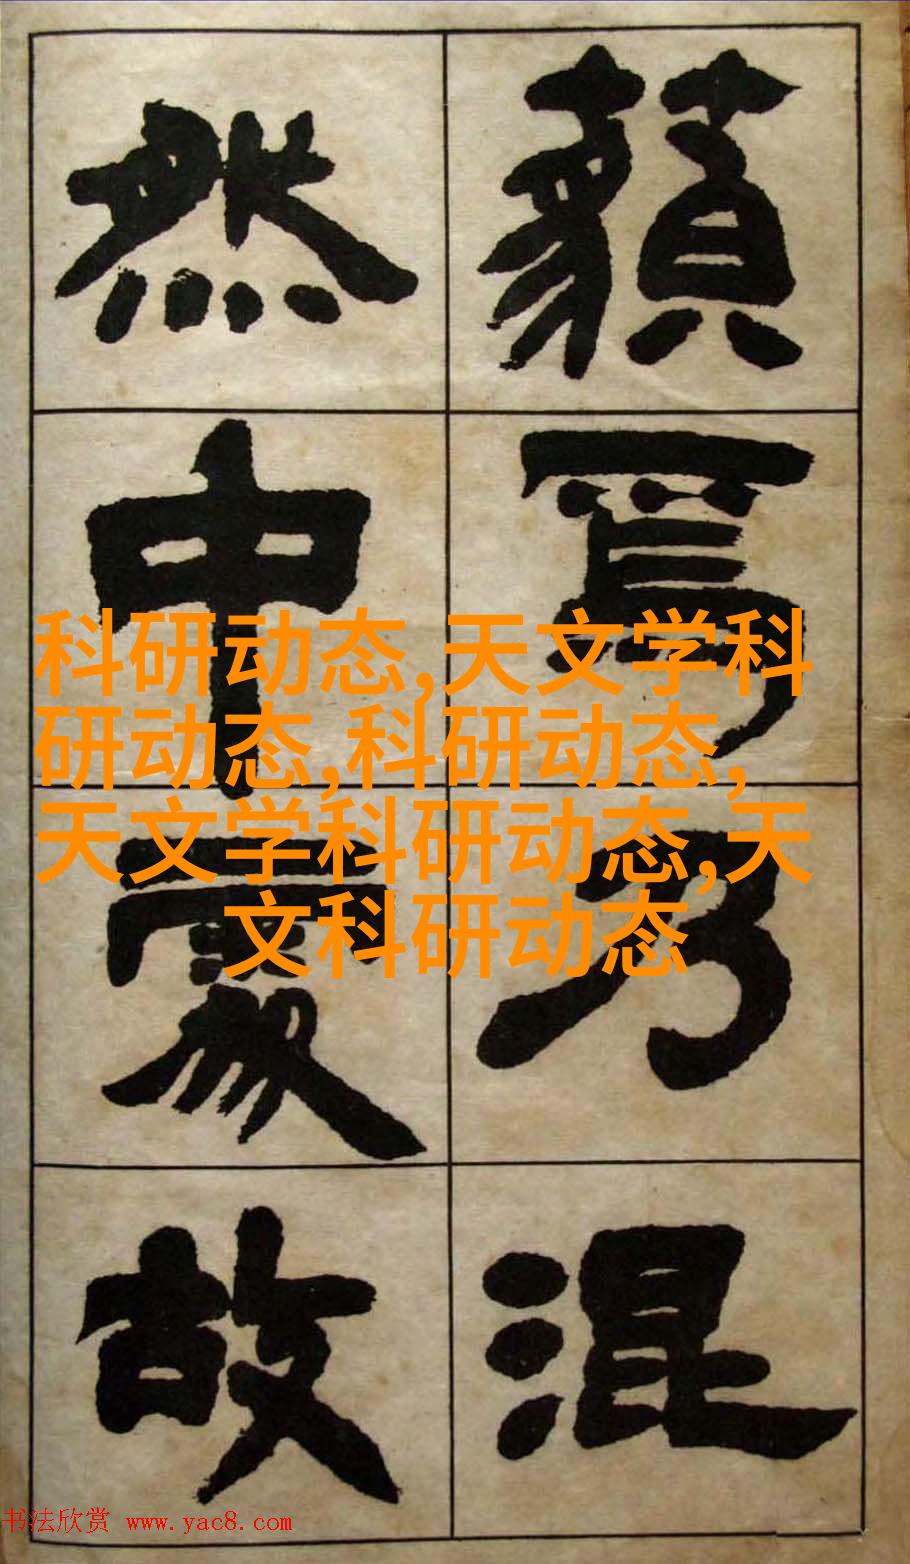 藐焉乃混
然中處故
科研动态,天文学科
研动态,科研动态,
天文学科研动态,天
文科研动态
书法欣赏 www.yac8.com